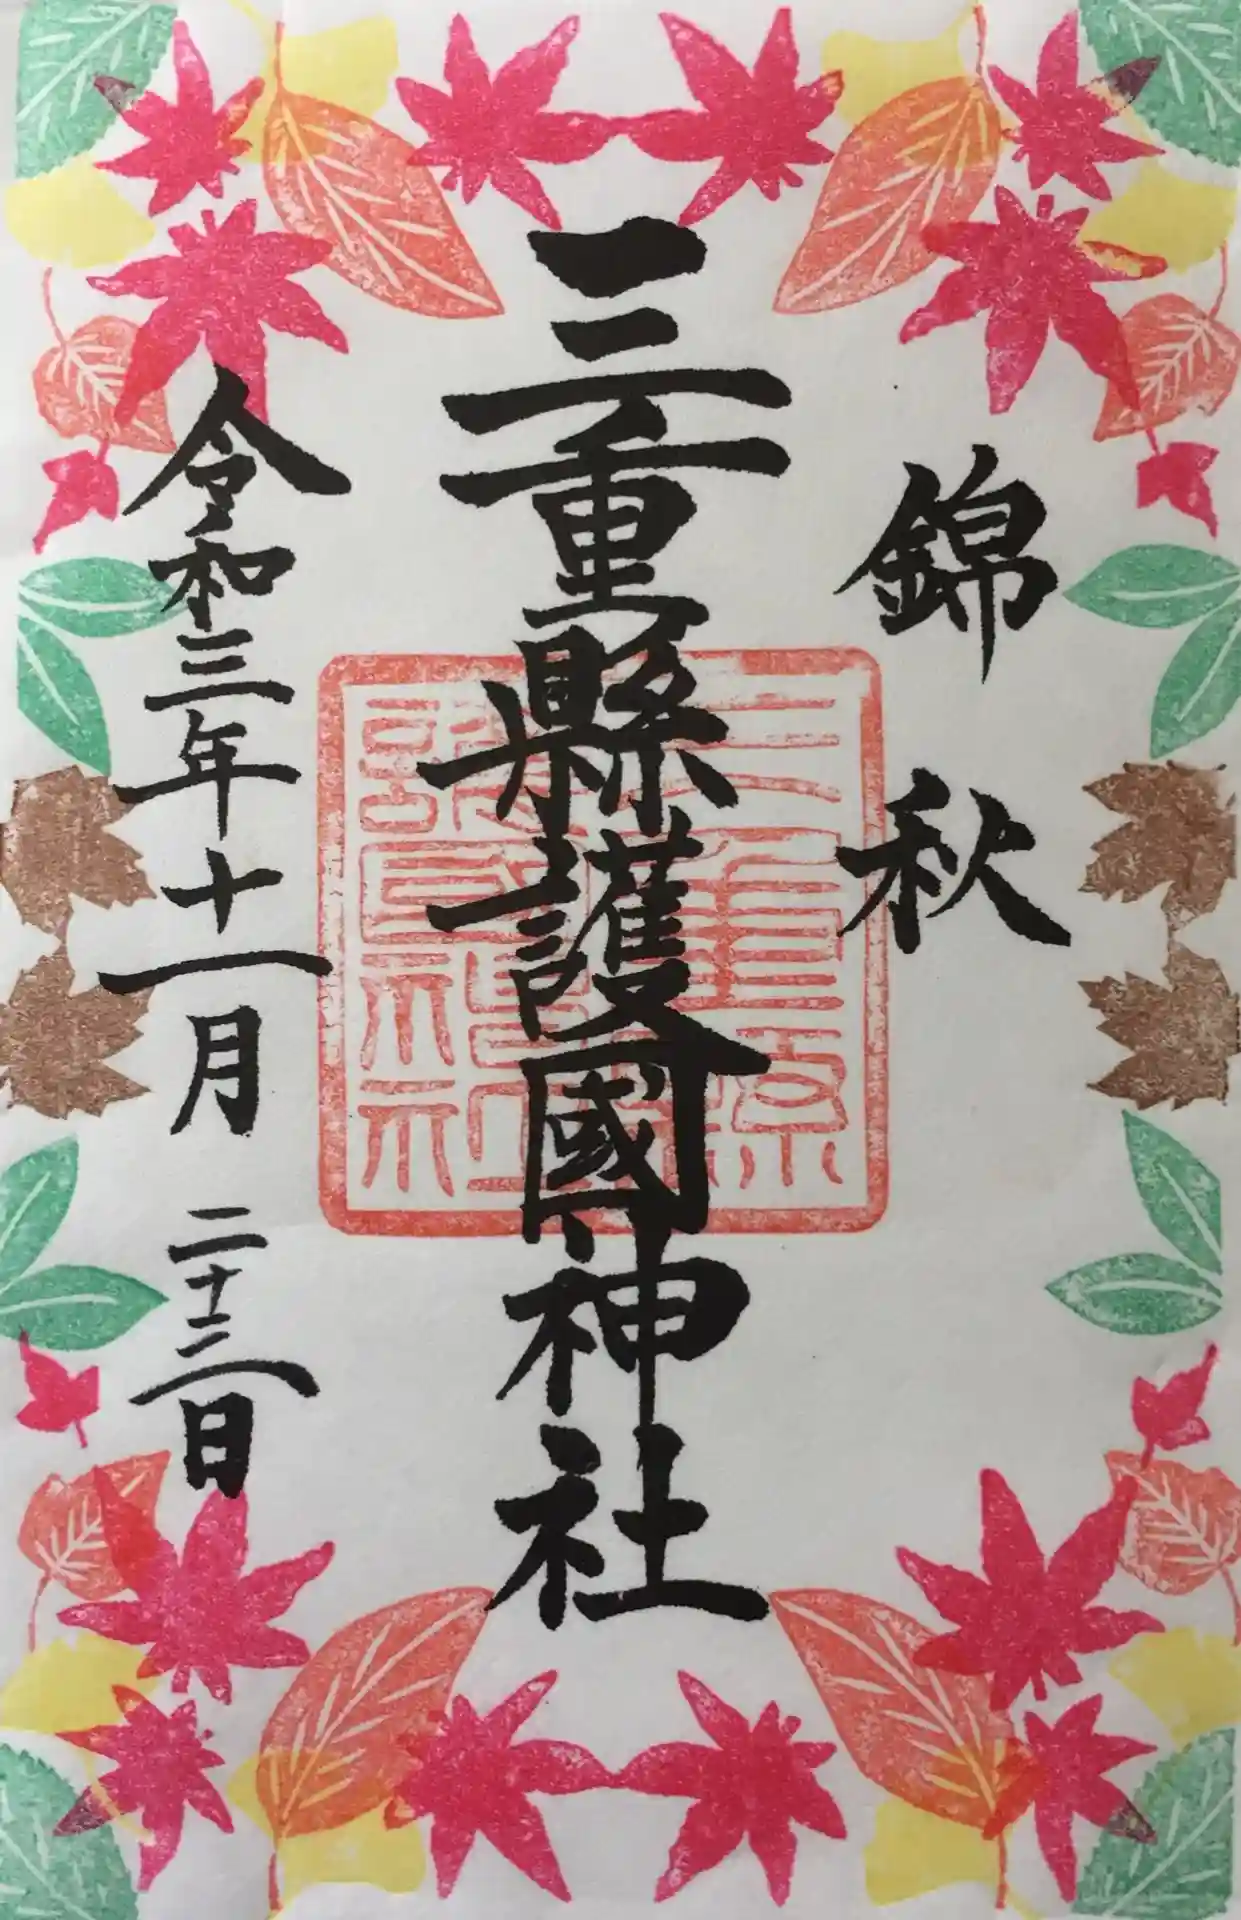 錦秋
三重縣護國神社
令和三年十一月二十三日
三重縣
護國神社